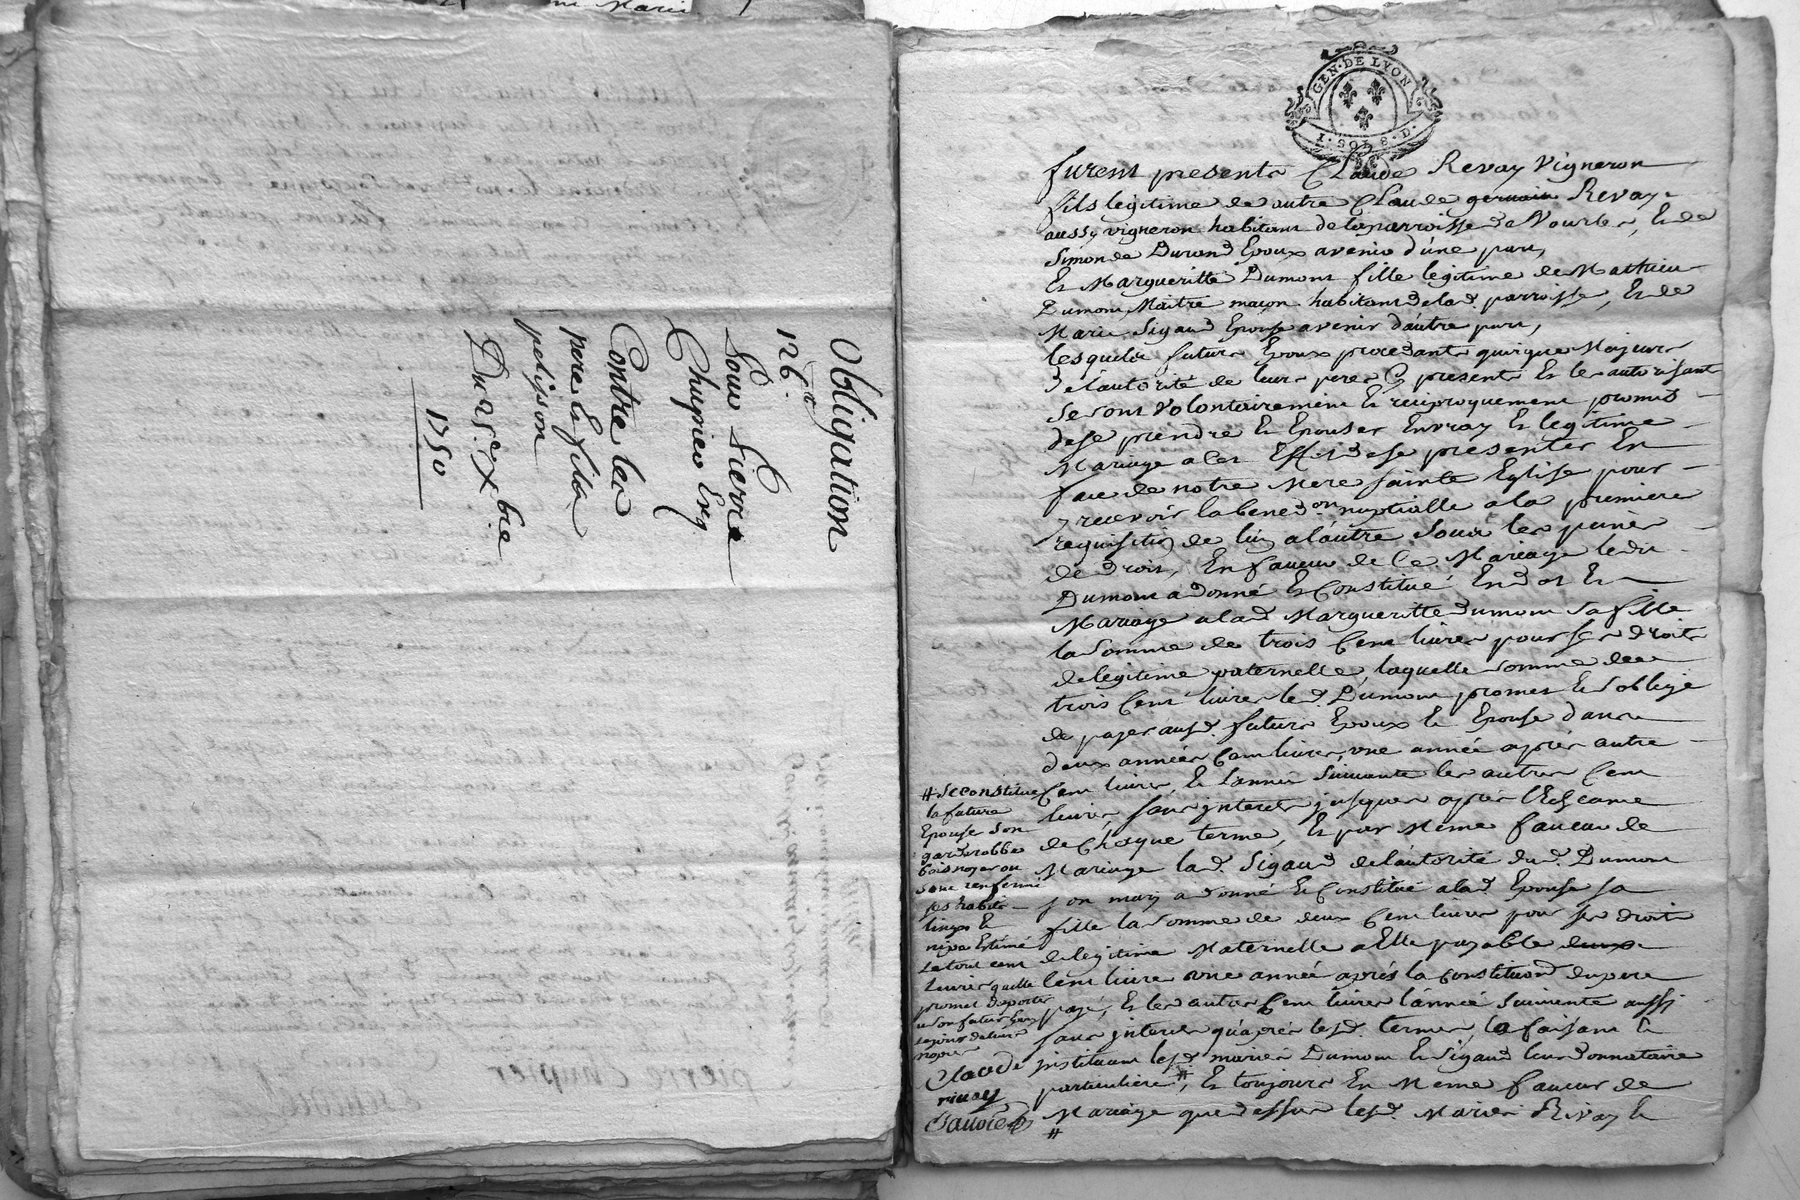 Obligation
126.
Pour Pierre
Chupieu Erg
Contre les
pere et fils
petisson
Du 25.e xbre
1750
pierre chupier
GEN. DE LYON
1. SOL 8. D.
furent presents Claude Revay vigneron
fils legitime de autre Claude germain Revay
aussy vigneron habitant de la parroisse de Vourles, et de
Simonde Durand Epoux avenir d'une part,
Et Margueritte Dumont fille legitime de Mathieu
Dumont Maitre maçon habitant de lad. parroisse, et de
Marie Sigaud Epouse avenir d'autre part,
lesquels futurs Epoux procedants quoique Majeurs
de l'autorité de leurs peres cy presents et les autorisant
se sont volontairement et reciproquement promis
de se prendre et Epouser En vray et legitime
Mariage a cet Effet de se presenter En
face de notre Mere sainte Eglise pour
y recevoir la bened.on nuptialle a la premiere
requisition de l'un a l'autre sous les peines
de droit, En faveur de ce Mariage ledit
Dumont a donné et Constitué En dot et
Mariage a lad. Margueritte Dumont sa fille
la somme de trois Cent livres pour ses droits
de legitime paternelle, laquelle somme de
trois Cent livres led. Dumont promet et s'oblige
de payer ausd. futurs Epoux et Epouse dans
deux années Cent livres, une année après autre
Cent livres, et l'année suivante les autres Cent
livres, sans interets jusques après l'Echeance
de chaque terme, Et par Meme faveur de
Mariage lad. Sigaud de l'autorité dud. Dumont
son mary a donné et Constitué a lad. Epouse sa
fille la somme de deux Cent livres pour ses droits
de legitime Maternelle a Elle payable
Cent livres une année après la Constitution du pere
payé, et les autres Cent livres l'année suivante aussi
sans interets qu'après lesd. termes, la faisant et
instituant lesd. mariés Dumont et Sigaud leur donnataire
particuliere #, Et toujours En Meme faveur de
Mariage que dessus lesd. Mariés Revay et
#
# se constitue
la future
Epouse son
garderobbe
bois noyer ou
sont renfermé
ses habits
linges et
nipes Estimé
le tout cent
livres qu'elle
promet d'aporter
a son futur Epoux
le jour de leurs
nopces
Claode
rivay